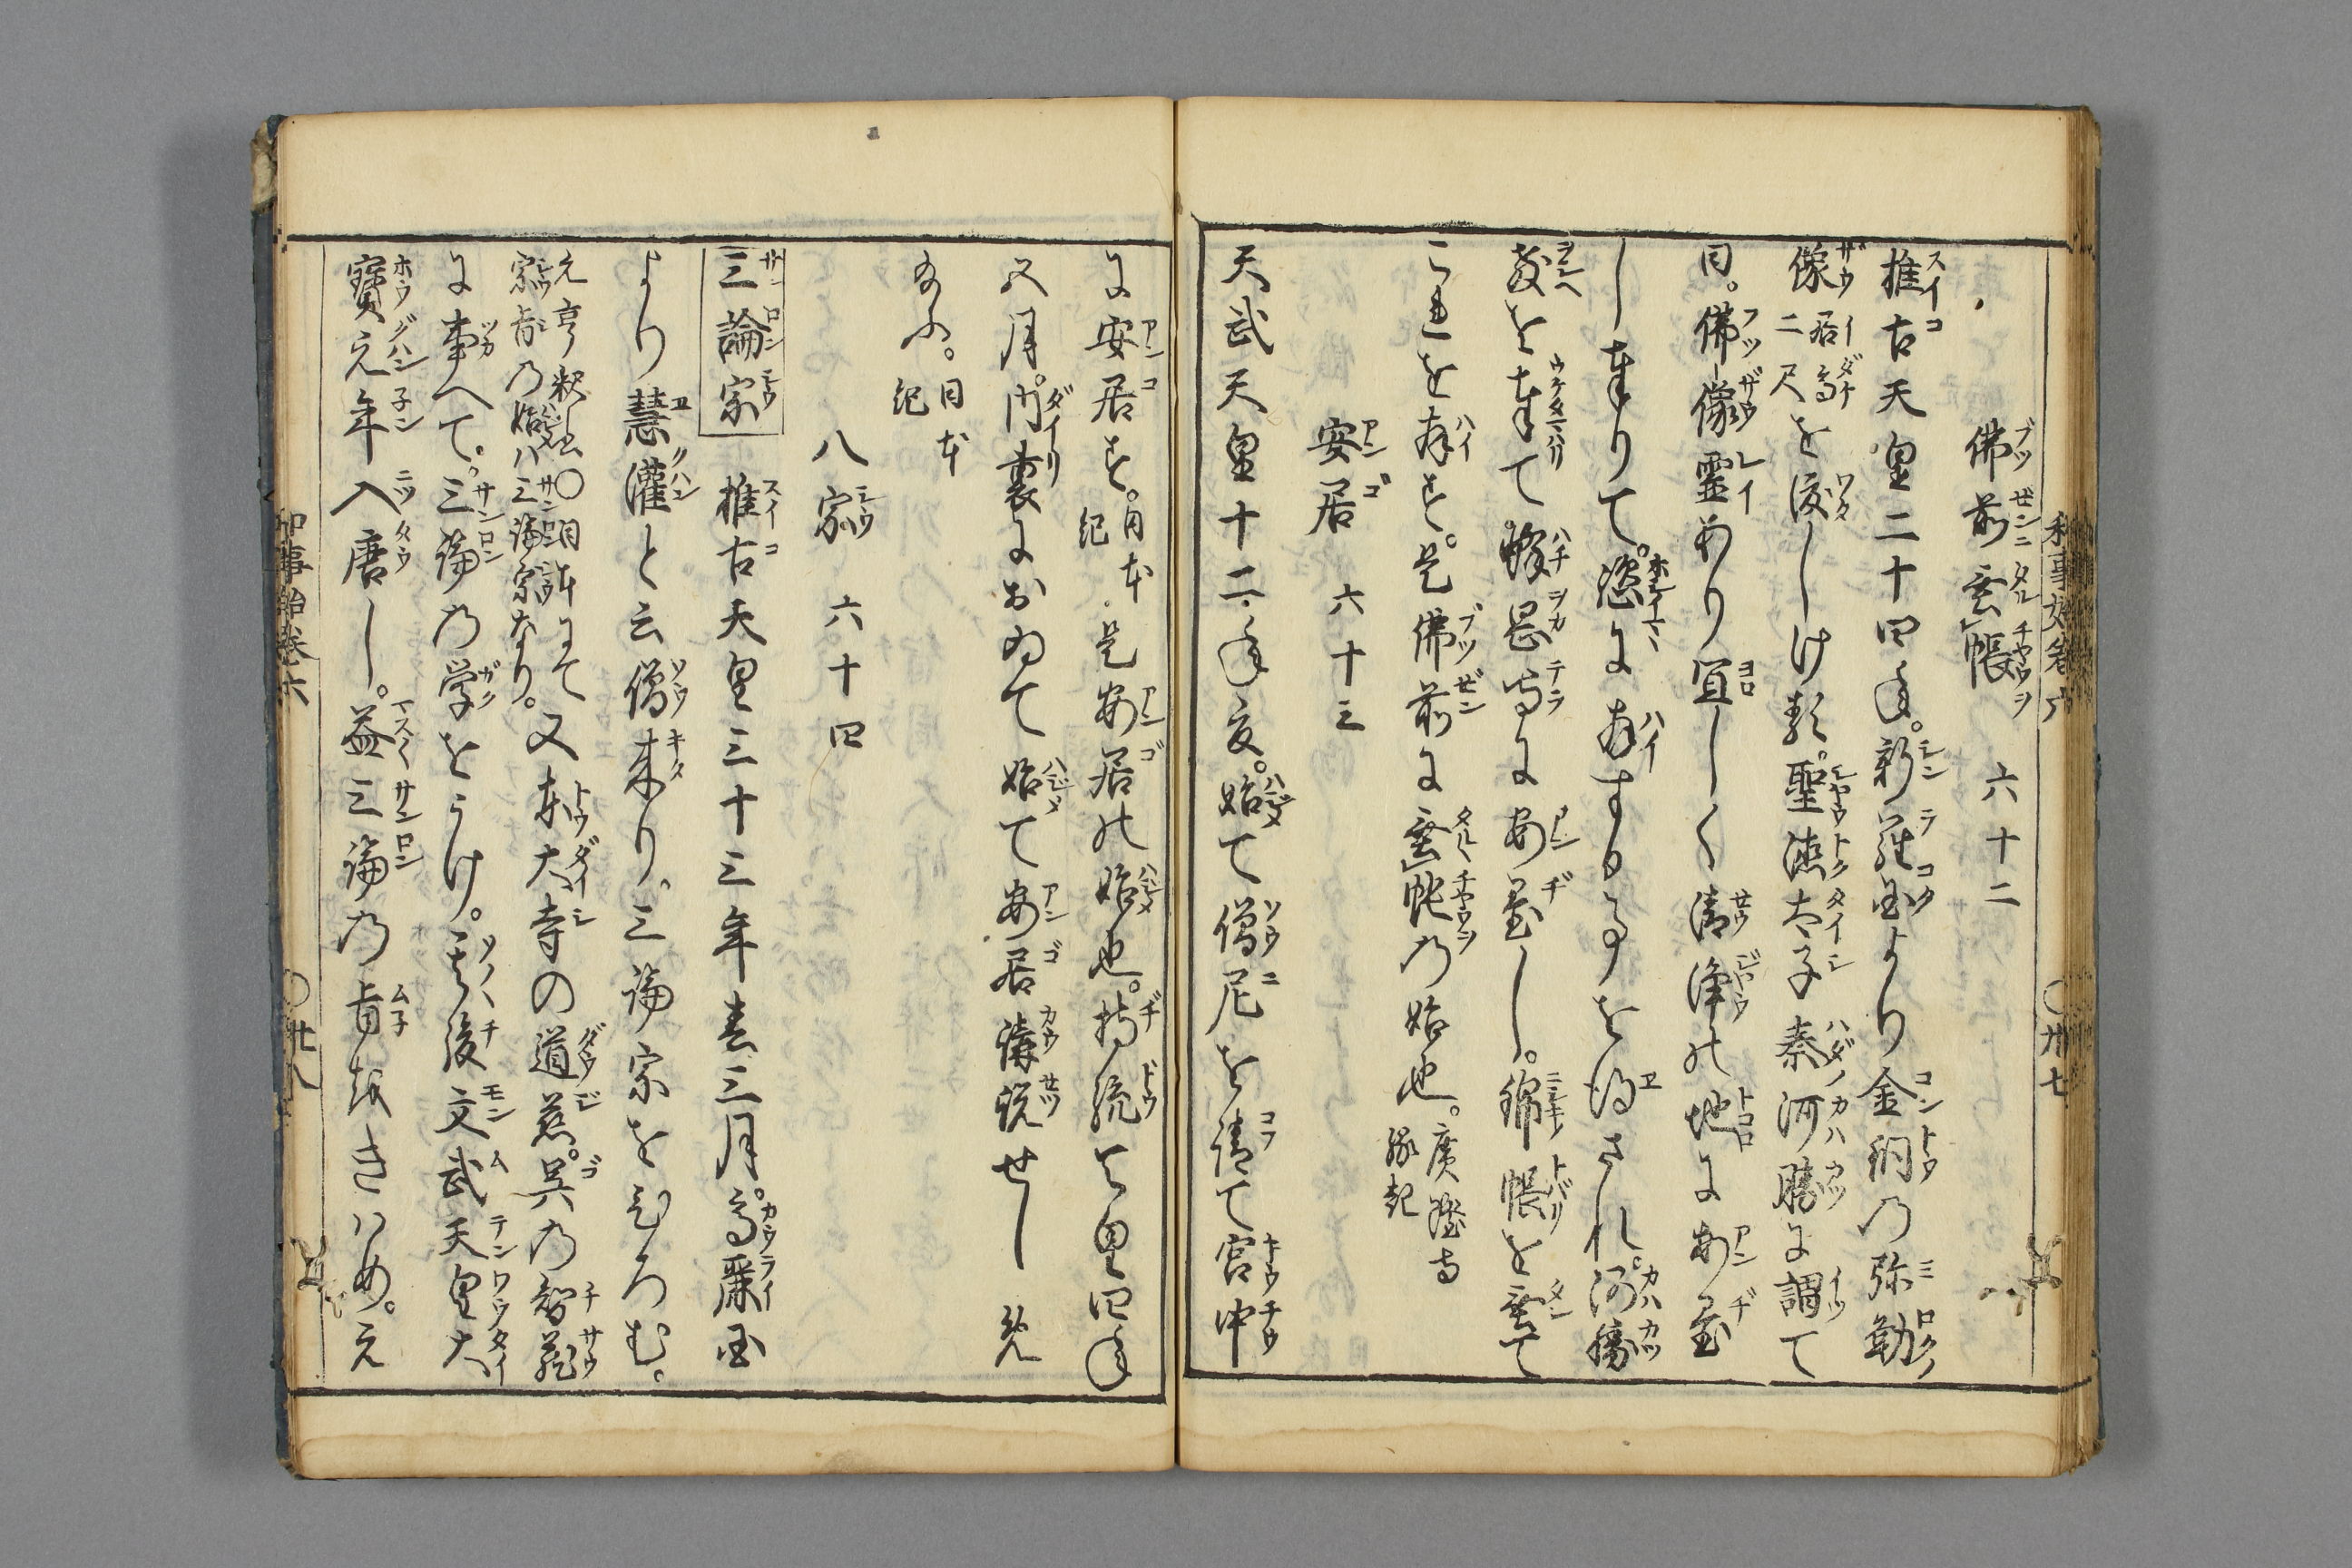 佛前垂帳 六十二
推古天皇二十四年。新羅国より金銅の弥勒
像居高二尺を渡しけ類。聖徳太子秦河勝に謂て
曰。佛像靈あり宜しく清浄の地に安置
し奉りて。恣に拝することを得ざれ。河勝
教を奉て蜂岡寺に安置し。錦帳を垂て
これを拝す。是佛前に垂帳の始也。廣隆寺縁起
安居 六十三
天武天皇十二年夏。始て僧尼を請て宮中
に安居す。日本紀 是安居の始也。持統天皇四年
五月。内裏におゐて始て安居講説せしめ
給ふ。日本紀
八宗 六十四
三論宗 推古天皇三十三年春三月。高麗国
より慧灌と云僧来り。三論宗をひろむ。
元亨釈書〇日本にて宗旨の始ハ三論宗なり。又東大寺の道慈。呉の智蔵
に事へて。三論の学をうけ。其後文武天皇大
寳元年入唐し。益三論の旨をきハめ。元
和事始巻六 〇廿七
和事始巻六 〇廿八